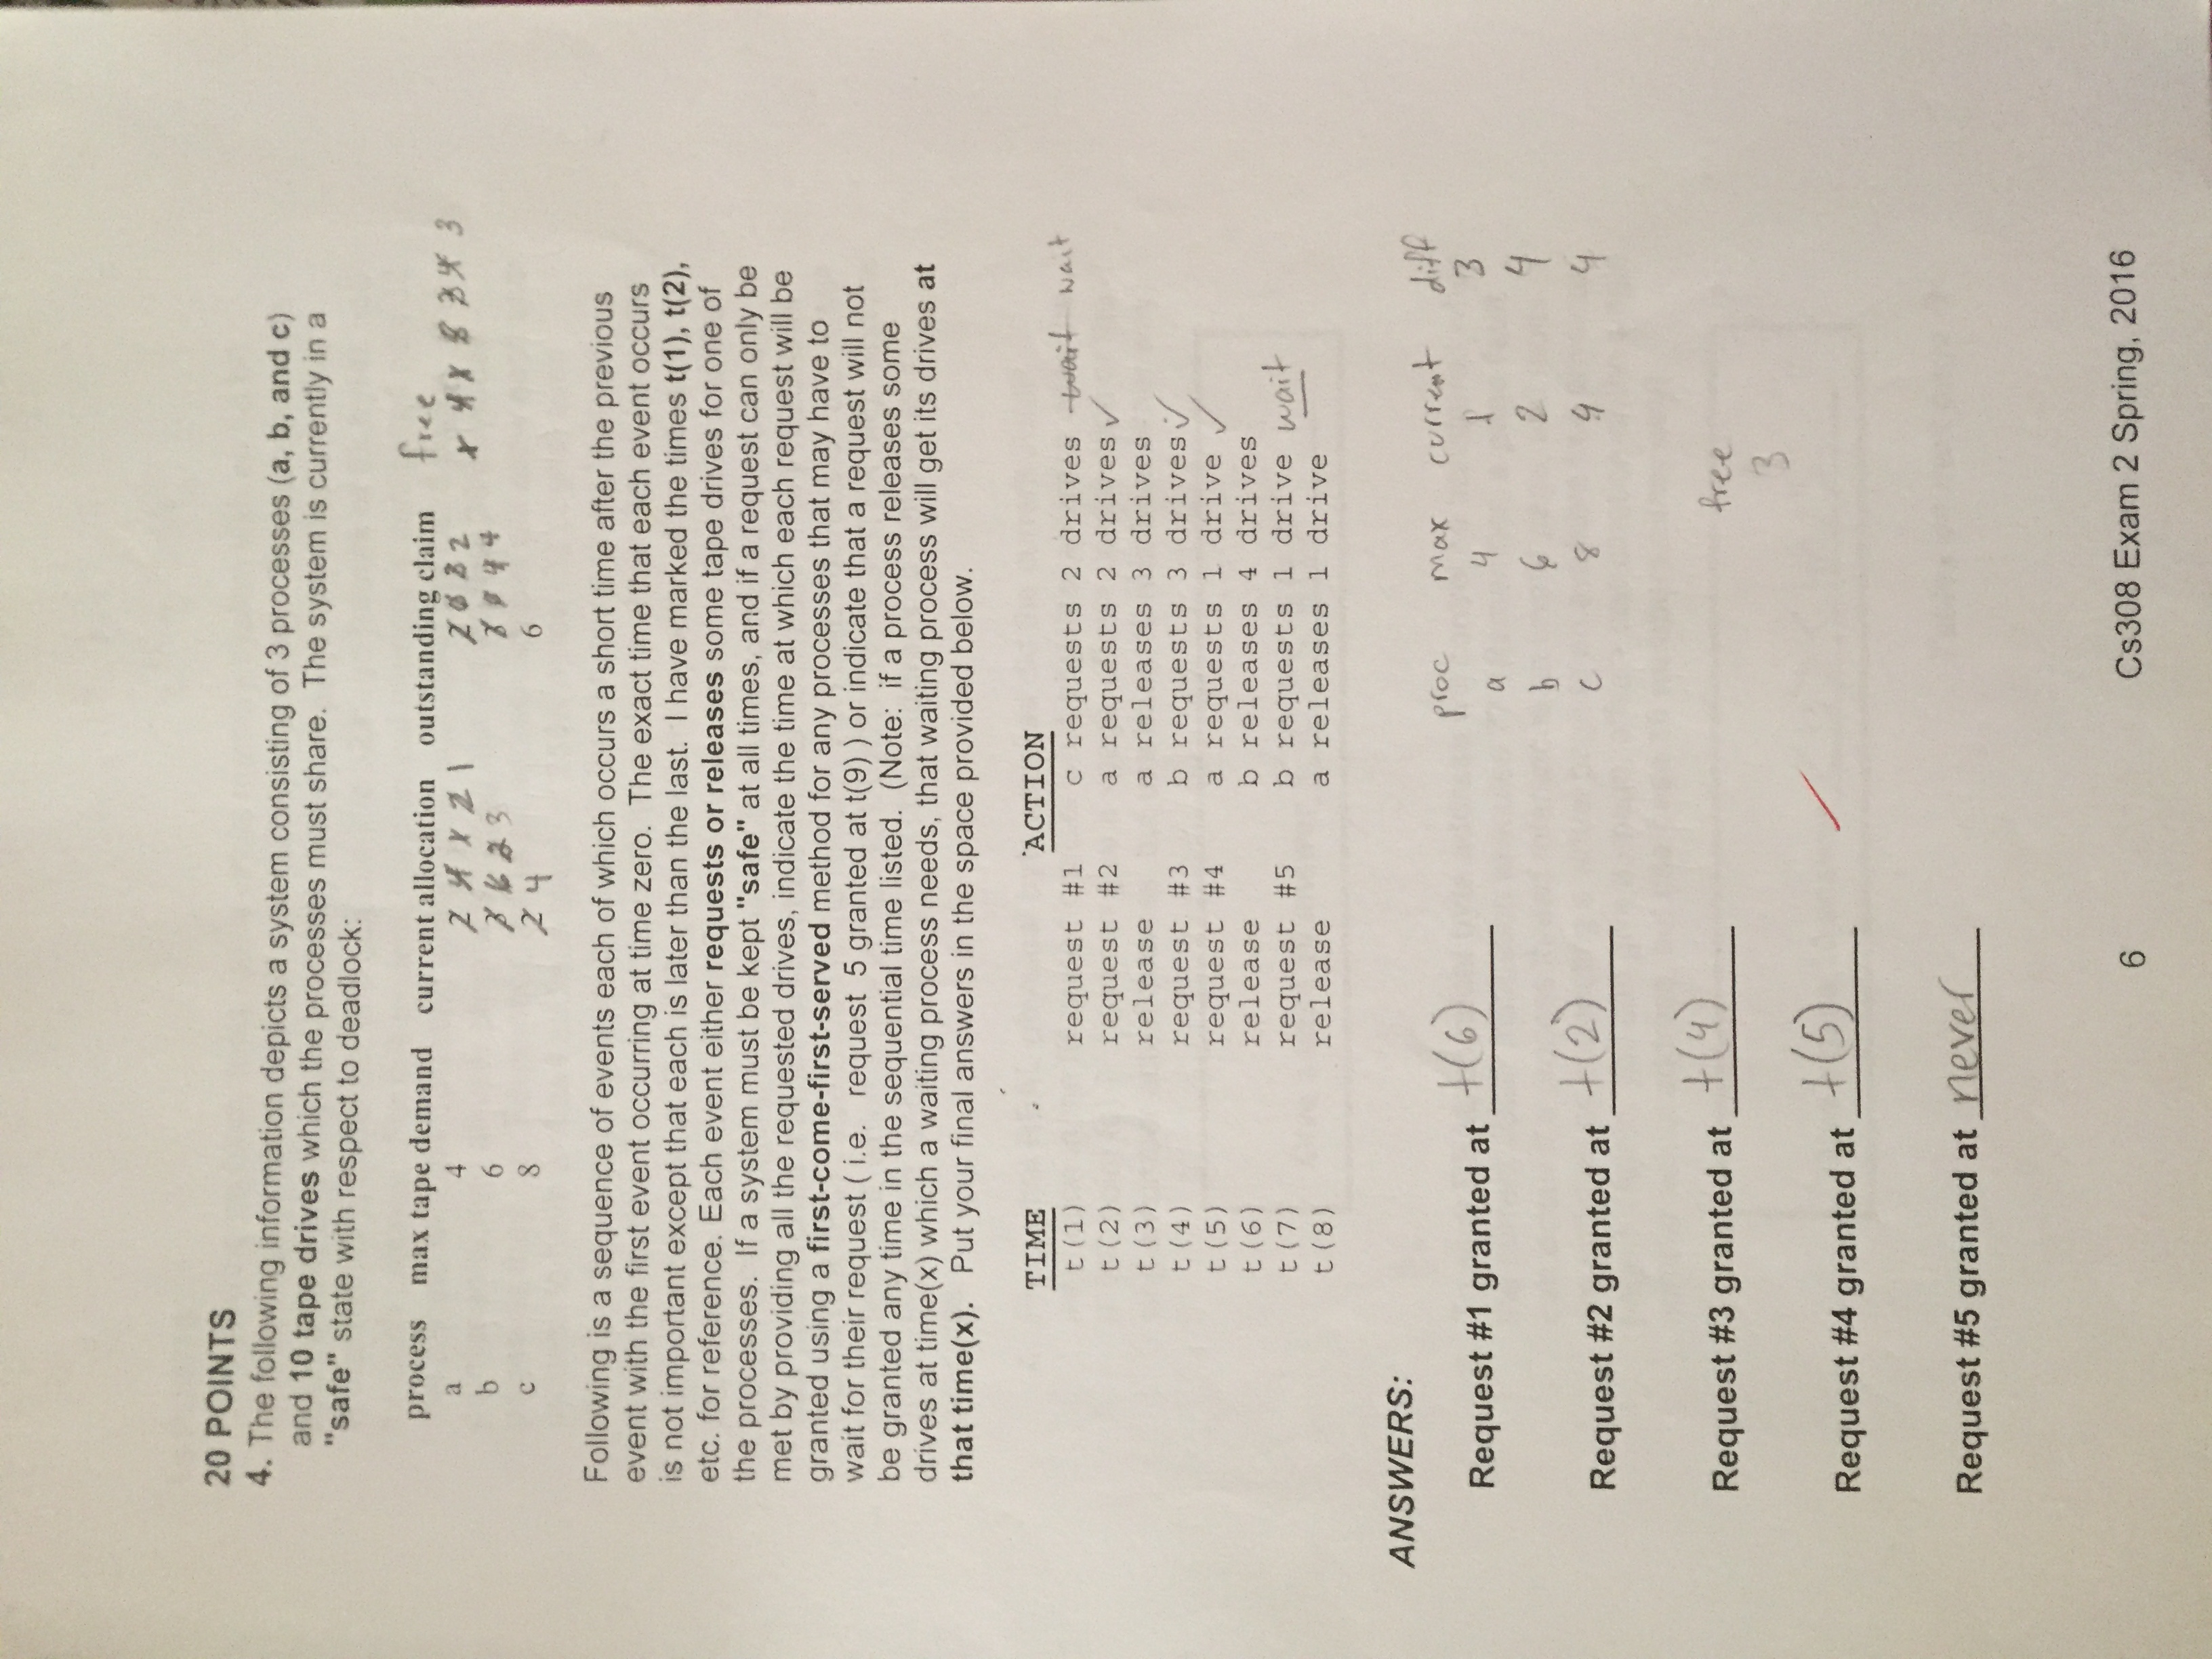 20 POINTS
4. The following information depicts a system consisting of 3 processes (a, b, and c)
and 10 tape drives which the processes must share. The system is currently in a
"safe" state with respect to deadlock:
process max tape demand current allocation outstanding claim free
a 4 2 4 2 1 2 0 3 2 4 8 3 4 3
b 6 3 6 2 3 3 0 4 4
c 8 2 4 6
Following is a sequence of events each of which occurs a short time after the previous
event with the first event occurring at time zero. The exact time that each event occurs
is not important except that each is later than the last. I have marked the times t(1), t(2),
etc. for reference. Each event either requests or releases some tape drives for one of
the processes. If a system must be kept "safe" at all times, and if a request can only be
met by providing all the requested drives, indicate the time at which each request will be
granted using a first-come-first-served method for any processes that may have to
wait for their request ( i.e. request 5 granted at t(9) ) or indicate that a request will not
be granted any time in the sequential time listed. (Note: if a process releases some
drives at time(x) which a waiting process needs, that waiting process will get its drives at
that time(x). Put your final answers in the space provided below.
TIME ACTION
t(1) request #1 c requests 2 drives wait wait
t(2) request #2 a requests 2 drives ✓
t(3) release a releases 3 drives
t(4) request #3 b requests 3 drives ✓
t(5) request #4 a requests 1 drive ✓
t(6) release b releases 4 drives
t(7) request #5 b requests 1 drive wait
t(8) release a releases 1 drive
ANSWERS:
proc max current diff
a 4 1 3
b 6 2 4
c 8 4 4
Request #1 granted at t(6)
Request #2 granted at t(2)
Request #3 granted at t(4)
free
3
Request #4 granted at t(5)
Request #5 granted at never
6 Cs308 Exam 2 Spring, 2016